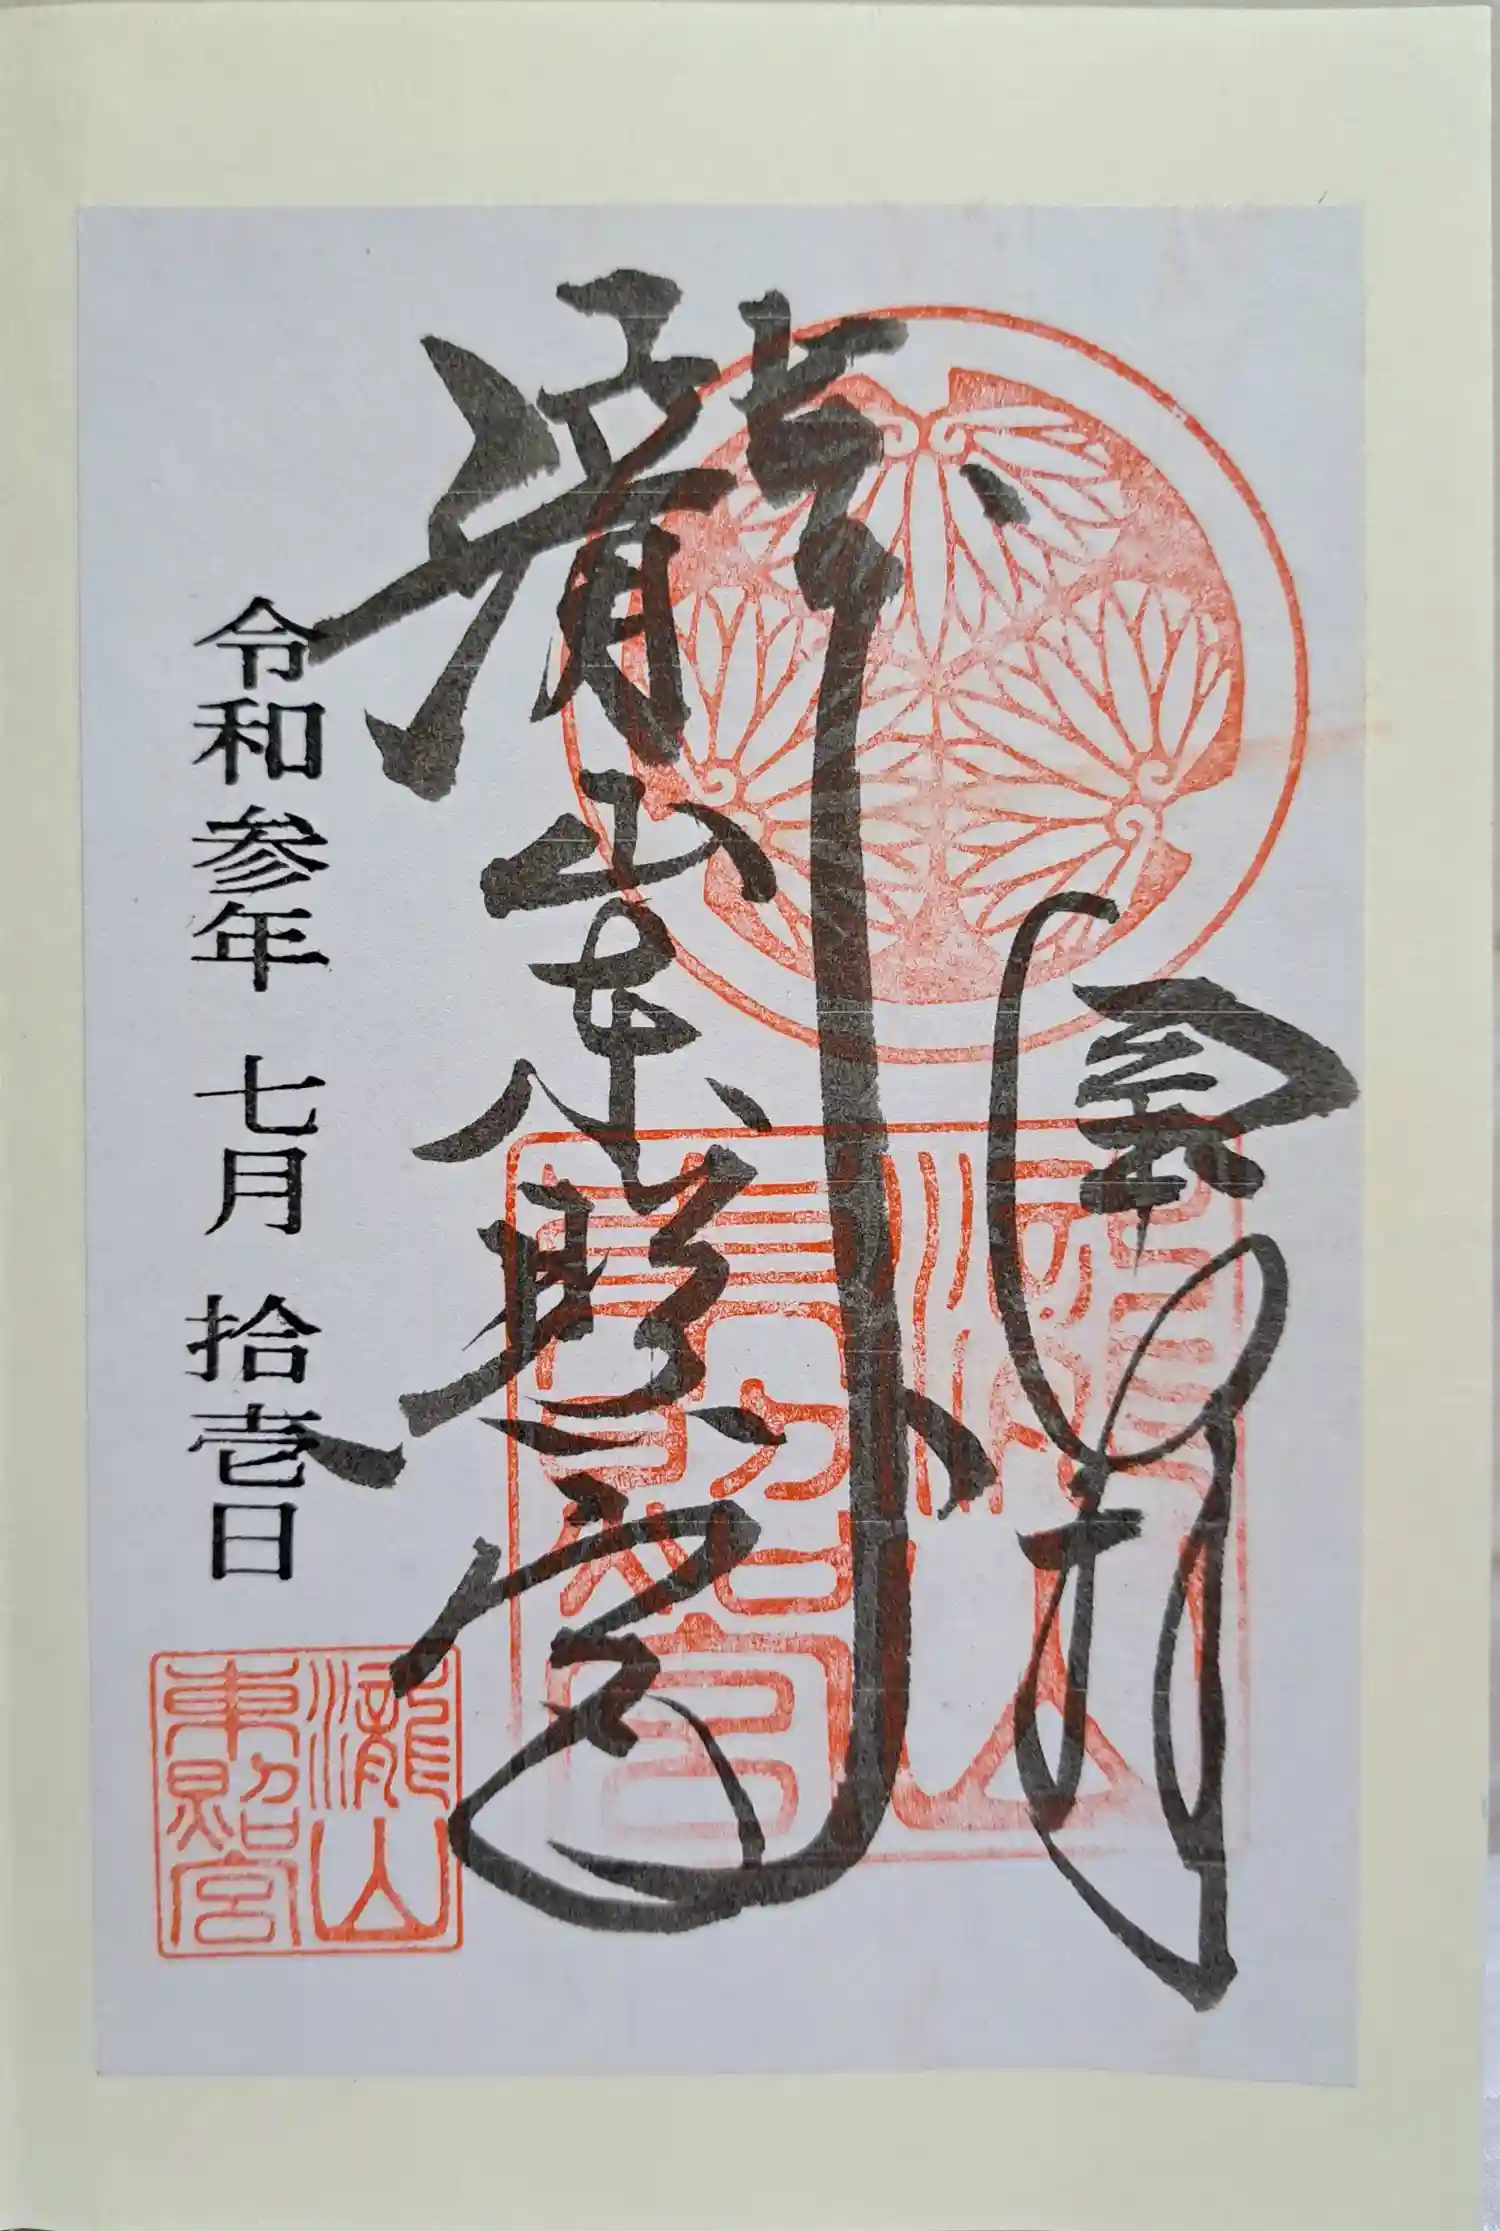 瀧山東照宮
瀧山
東照宮
令和参年 七月 拾壱日
瀧山
東照宮